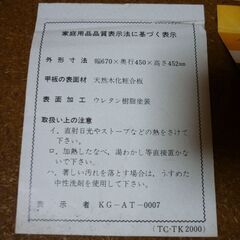 家庭用品品質表示法に基づく表示
外形寸法 幅670×奥行450×高さ452mm
甲板の表面材 天然木化粧合板
表面加工 ウレタン樹脂塗装
取扱い上の注意
イ、直射日光やストーブなどの熱をさけて下さい。
ロ、加熱したなべ、湯わかし等を直接置かないで下さい。
ハ、著しい汚れを落とす場合は、うすめた中性洗剤を使用して下さい。
表示者 KG-AT-0007
(TC·TK2000)